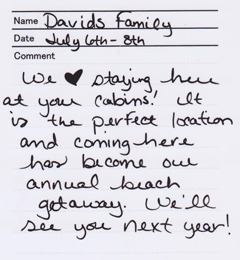 Name Davids Family
Date July 6th - 8th
Comment
We ♥ staying here
at your cabins! It
is the perfect location
and coming here
has become our
annual beach
getaway. We'll
see you next year!